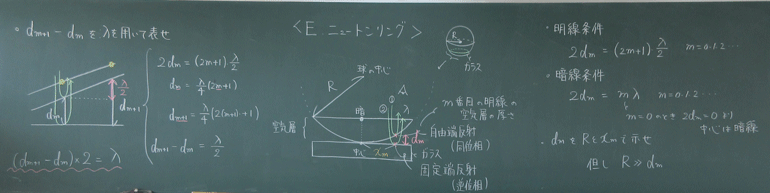 ・dm+1 - dm を λ を用いて表せ
λ/2
dm
dm+1
(dm+1 - dm)×2 = λ
2dm = (2m+1)・λ/2
dm = λ/4(2m+1)
dm+1 = λ/4(2(m+1)+1)
dm+1 - dm = λ/2
<E. ニュートンリング>
R
ガラス
球の中心
R
A
② ①
λ
暗
空気層
dm
m番目の明線の
空気層の厚さ
自由端反射
(同位相)
中心
xm
ガラス
固定端反射
(逆位相)
・明線条件
2dm = (2m+1)・λ/2 m=0.1.2…
・暗線条件
2dm = mλ m=0.1.2…
m=0のとき 2dm=0より
中心は暗線
・dmをRとxmで示せ
但し R≫dm